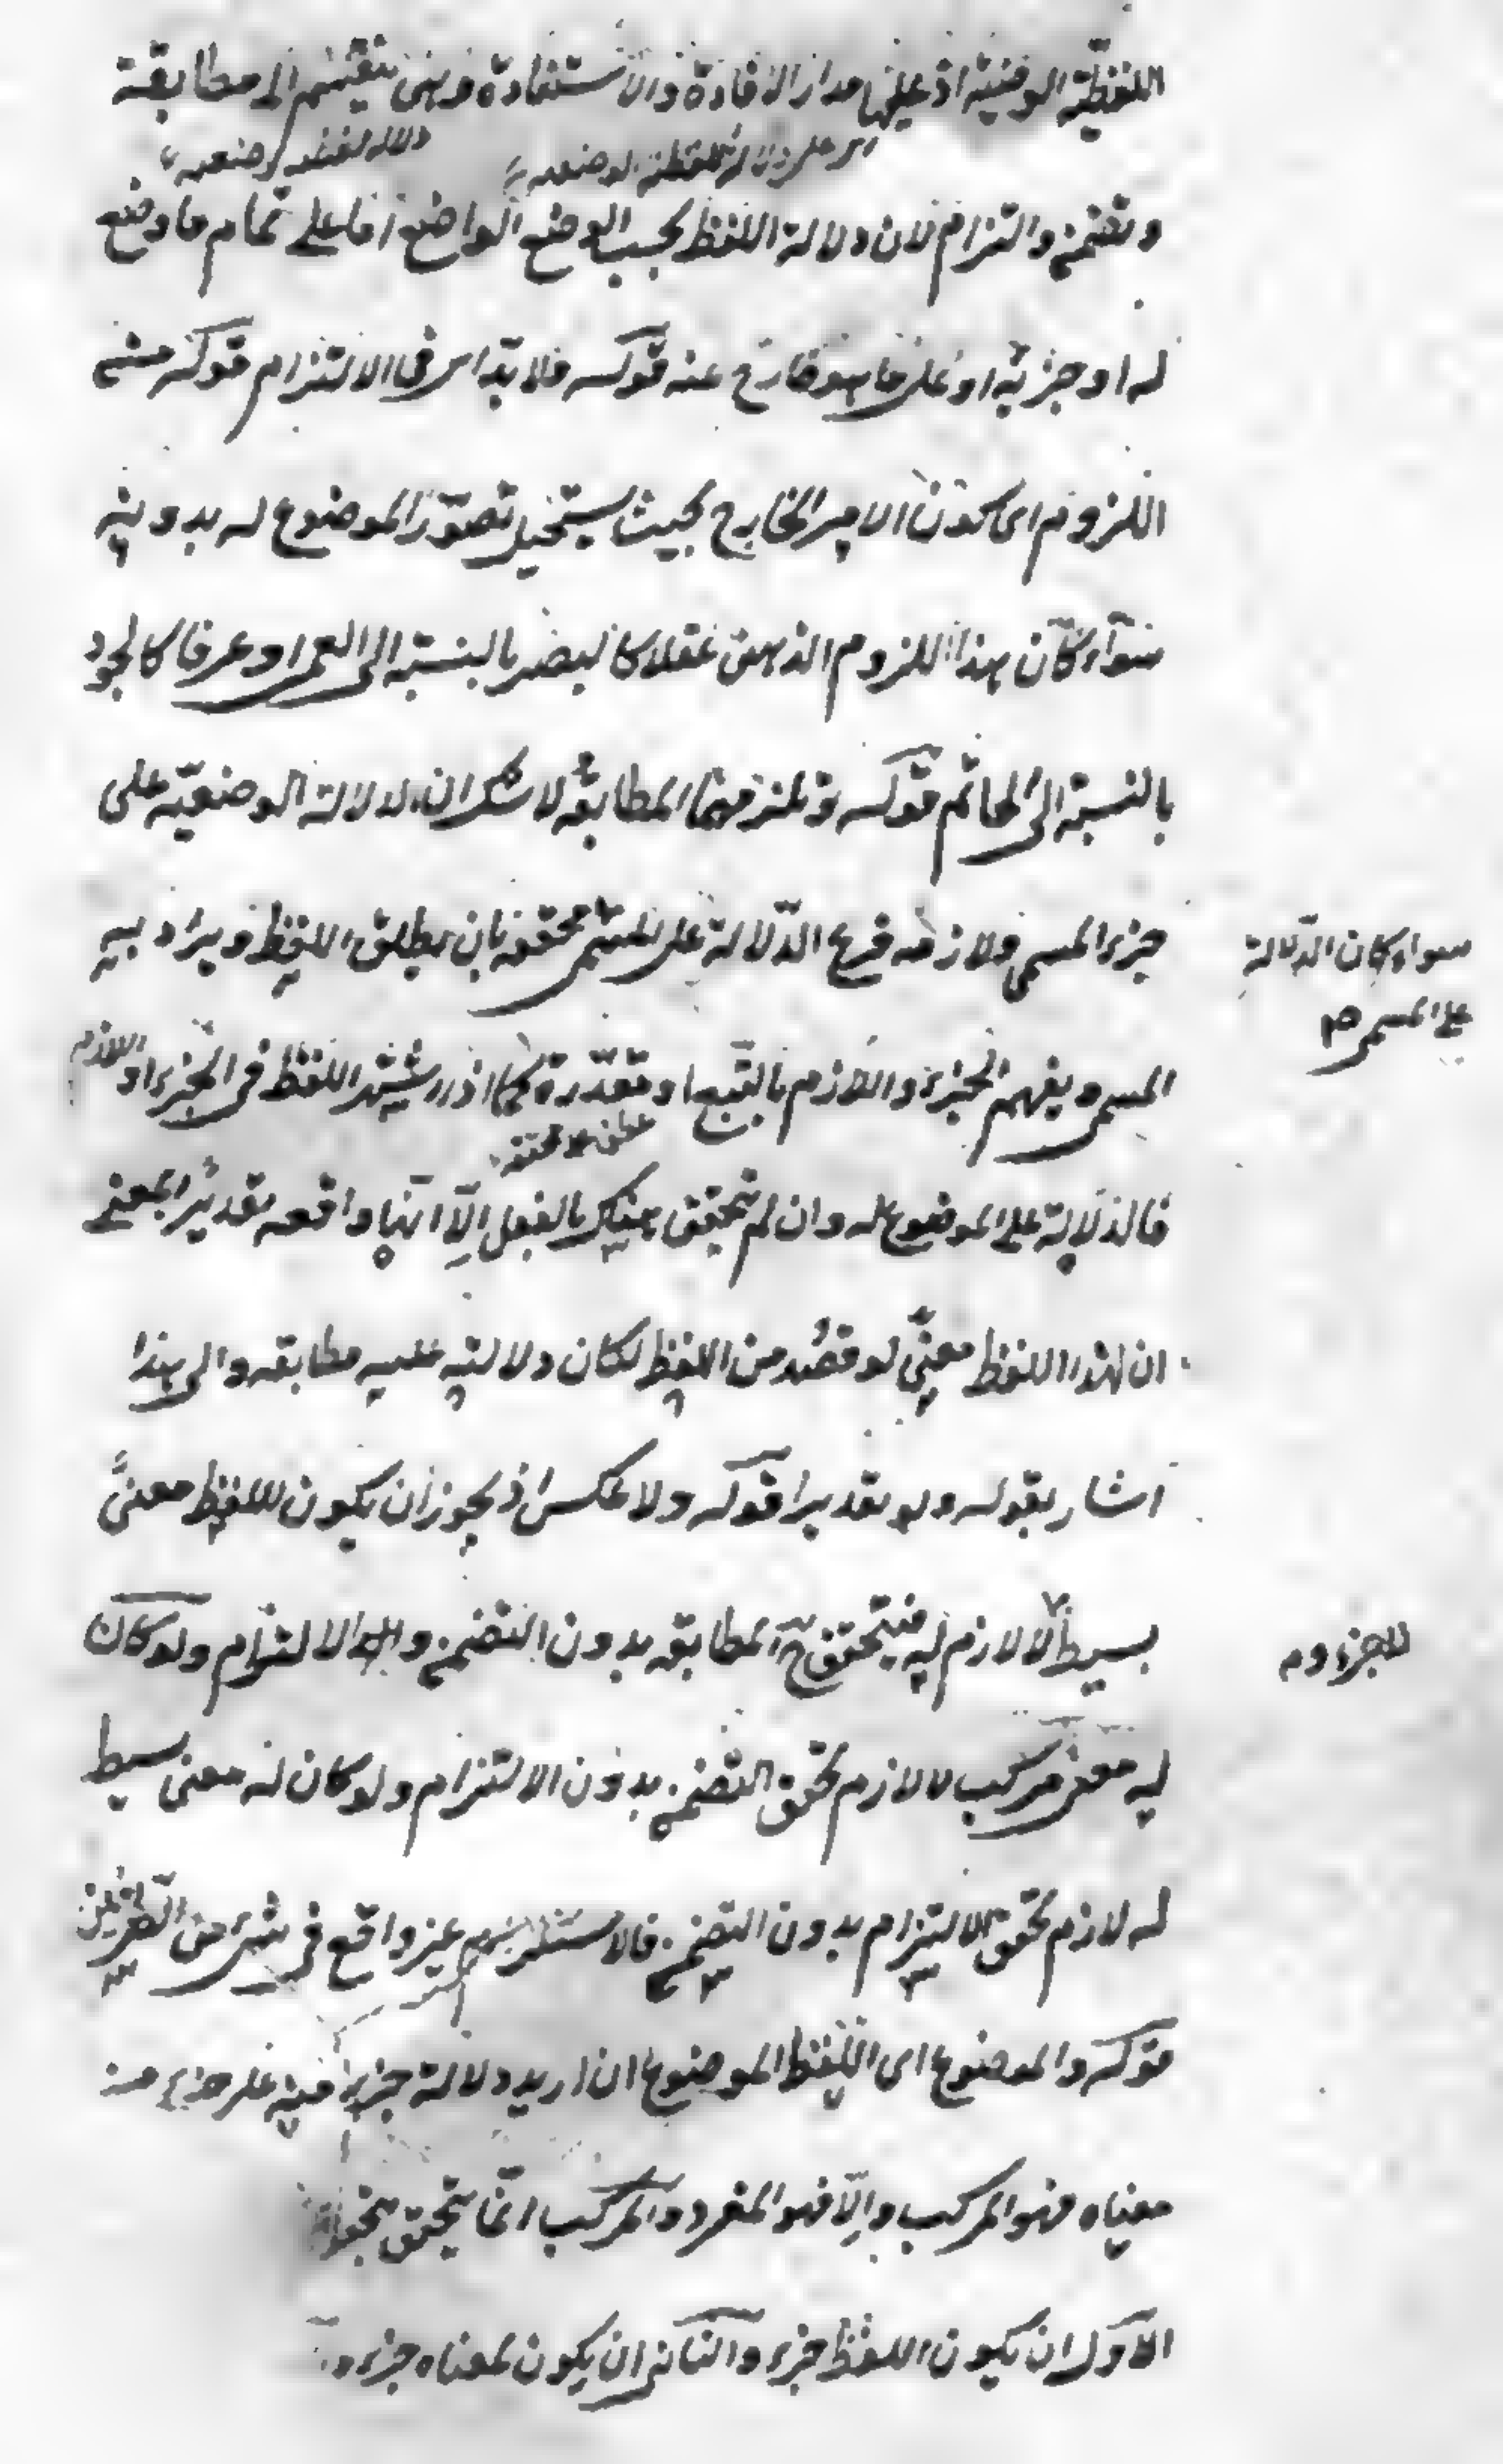 اللفظية الوضعية اذ عليها مدار الافادة والاستفادة وهى تنقسم الى مطابقة
اى على دلالة اللفظية الوضعية
دلالة لفظية وضعية
وتضمن والتزام لان دلالة اللفظ بحسب الوضع الواضع اما على تمام ما وضع
له او جزئه او على ما هو خارج عنه قوله فلا بد اى فى الالتزام قوله من
اللزوم اى كون الامر الخارج بحيث يستحيل تصور الموضوع له بدونه
سواء كان هذا اللزوم الذهنى عقلا كالبصر بالنسبة الى العمى او عرفا كالجود
بالنسبة الى الحاتم قوله وتلزمهما المطابقة لا شك ان الدلالة الوضعية على
جزء المسمى ولازمه فرع الدلالة على المسمى محققة بان يطلق اللفظ ويراد به
سواء كان الدلالة
على المسمى صح
المسمى ويفهم الجزء واللازم بالتبع او مقدرة كما اذا اشتهر اللفظ فى الجزء او اللازم
عطف على محققة
فالدلالة على الموضوع له وان لم يتحقق هناك بالفعل الا انها واقعة تقديرا بمعنى
ان لهذا اللفظ معنى لو قصد من اللفظ لكان دلالته عليه مطابقة والى هذا
اشار بقوله ولو تقديرا قوله ولا عكس اذ يجوز ان يكون للفظ معنى
بسيط لا لازم له فيتحقق ح المطابقة بدون التضمن والالتزام ولو كان
لا جزء له
له معنى مركب لا لازم تحقق التضمن بدون الالتزام ولو كان له معنى بسيط
له لازم تحقق الالتزام بدون التضمن فالاستلزام غير واقع فى شئ من الطرفين
قوله والموضوع اى اللفظ الموضوع ان اريد دلالة جزء منه على جزء من
معناه فهو المركب والا فهو المفرد والمركب انما يتحقق بتحقق
الاول ان يكون اللفظ جزء والثانى ان يكون لمعناه جزء و